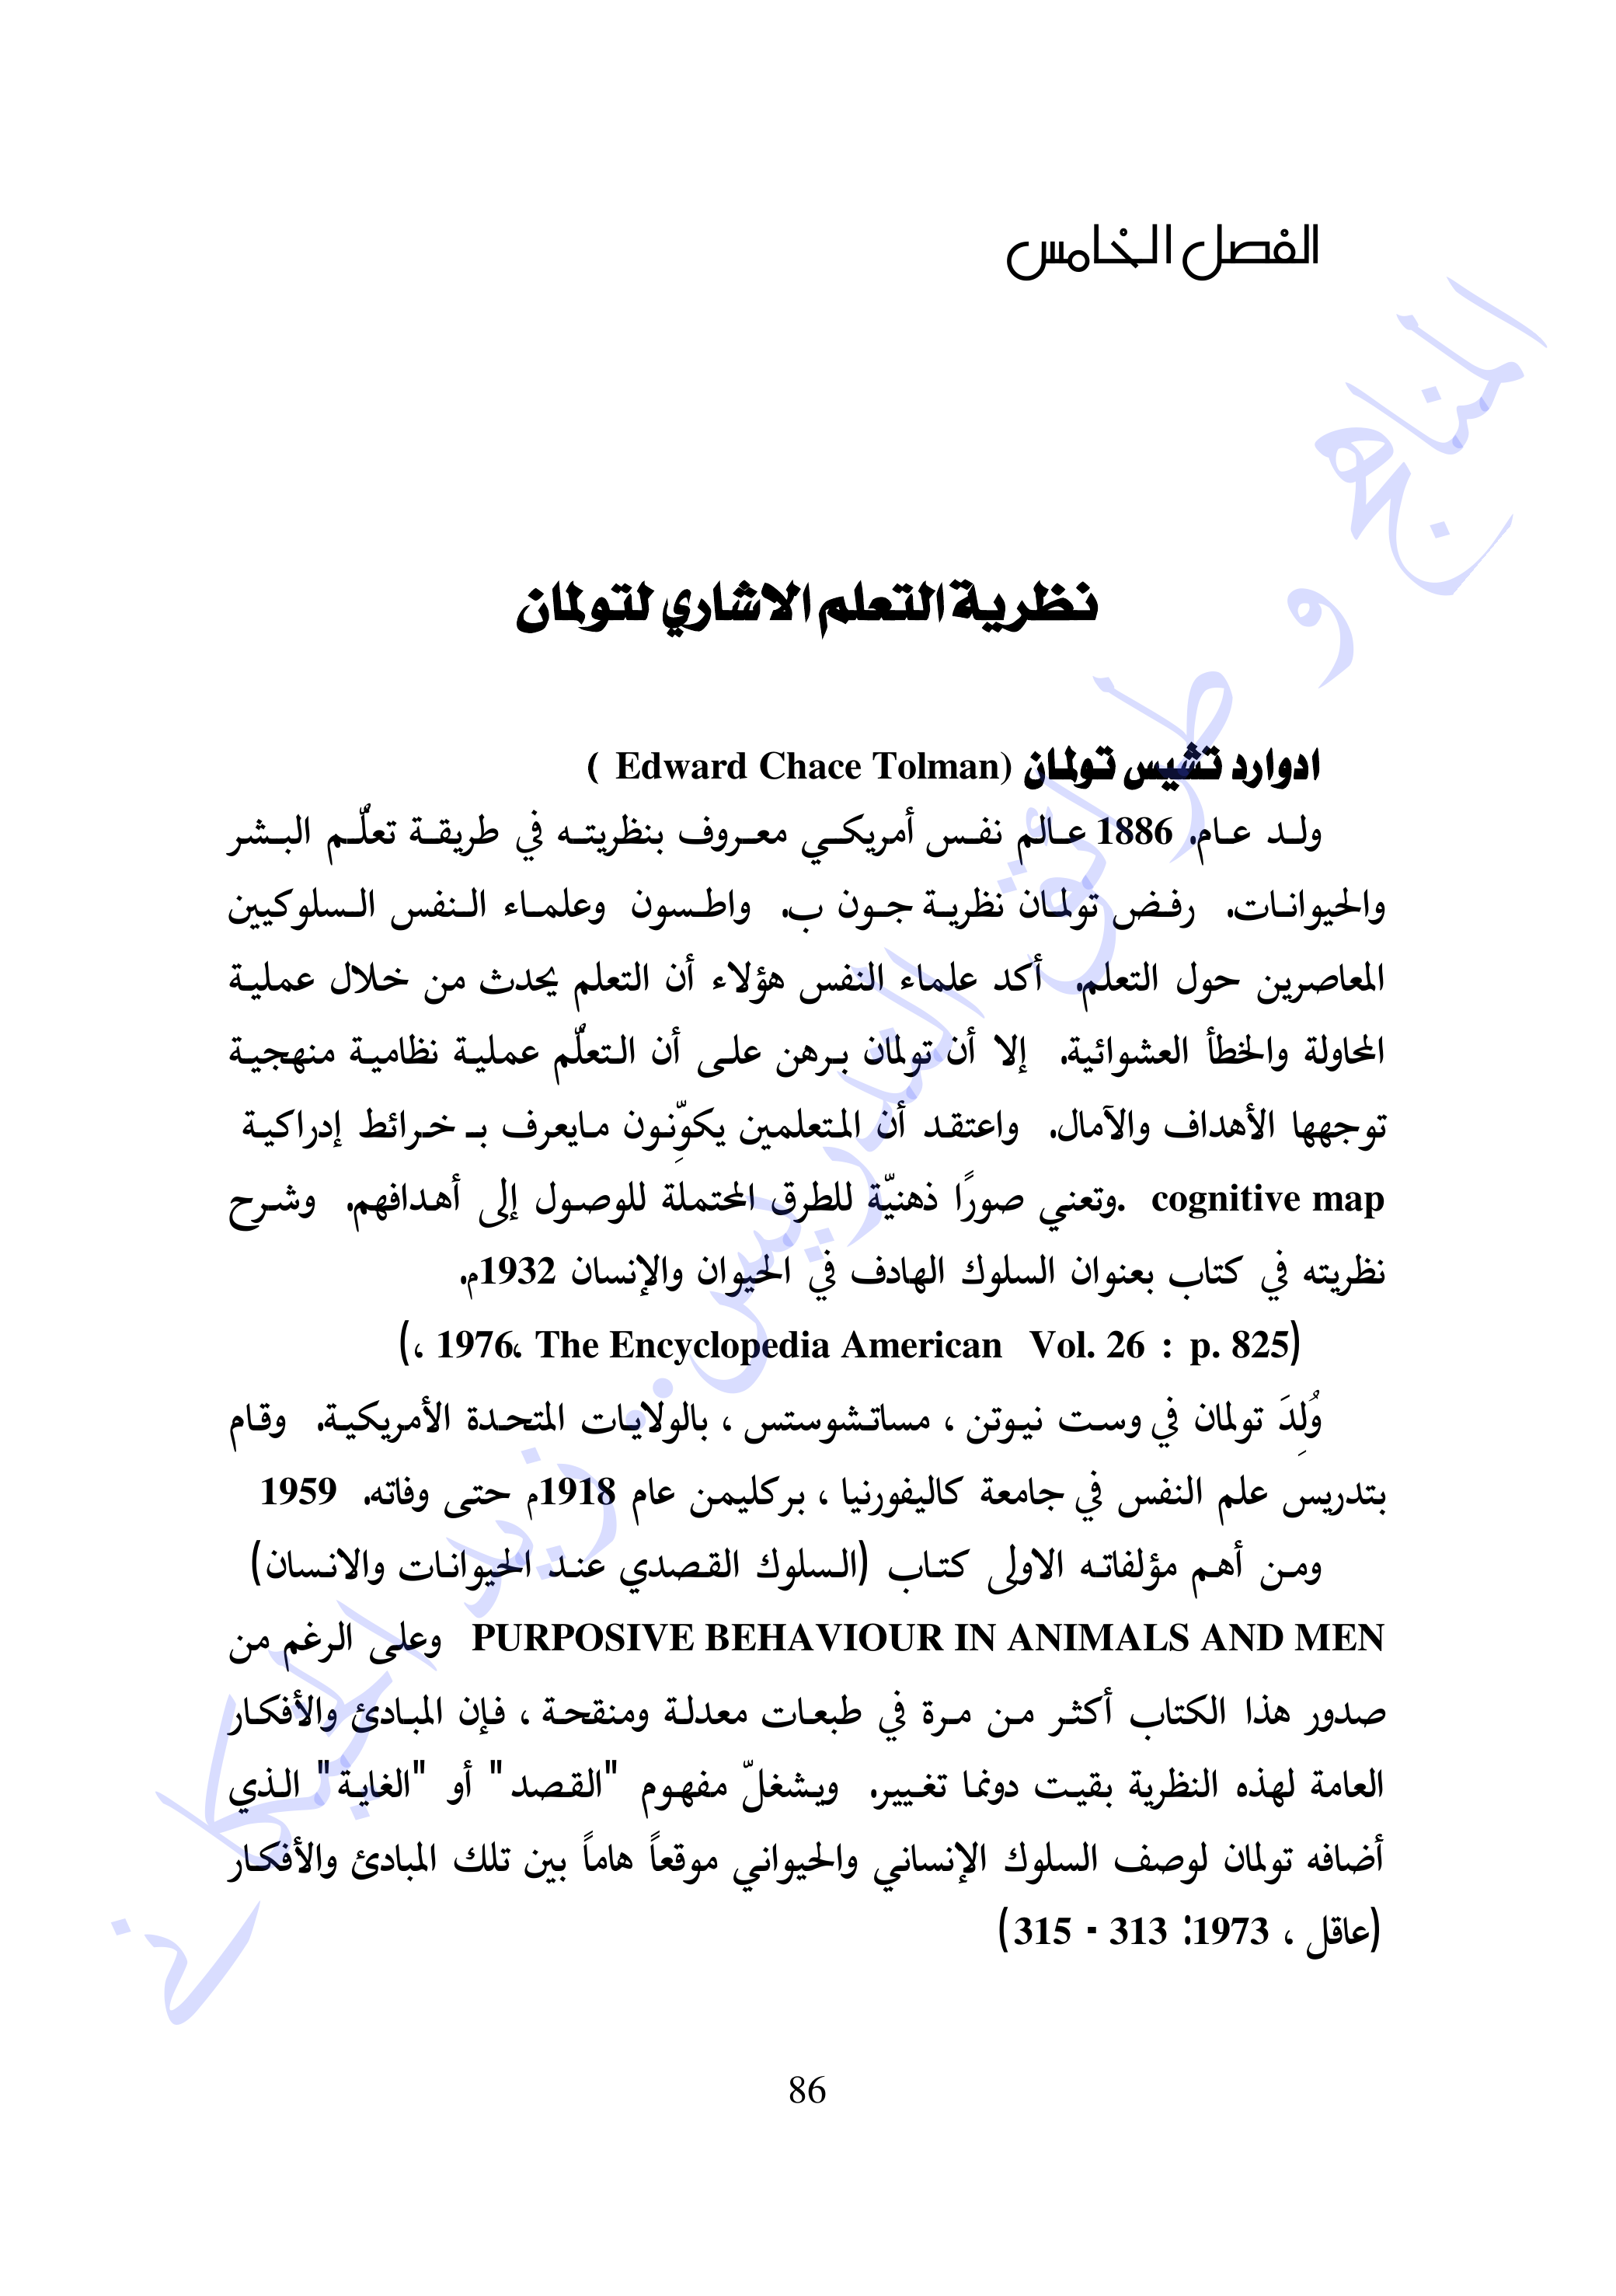 الفصل الخامس
نظرية التعلم الاشاري لتولمان
ادوارد تشيس تولمان (Edward Chace Tolman )
ولد عام. 1886 عالم نفس أمريكي معروف بنظريته في طريقة تعلّم البشر
والحيوانات. رفض تولمان نظرية جون ب. واطسون وعلماء النفس السلوكيين
المعاصرين حول التعلم. أكد علماء النفس هؤلاء أن التعلم يحدث من خلال عملية
المحاولة والخطأ العشوائية. إلا أن تولمان برهن على أن التعلّم عملية نظامية منهجية
توجهها الأهداف والآمال. واعتقد أن المتعلمين يكوّنِون مايعرف بـ خرائط إدراكية
cognitive map .وتعني صورًا ذهنيّة للطرق المحتملة للوصول إلى أهدافهم. وشرح
نظريته في كتاب بعنوان السلوك الهادف في الحيوان والإنسان 1932م.
(، 1976، The Encyclopedia American Vol. 26 : p. 825)
وُلِدَ تولمان في وست نيوتن ، مساتشوستس ، بالولايات المتحدة الأمريكية. وقام
بتدريس علم النفس في جامعة كاليفورنيا ، بركليمن عام 1918م حتى وفاته. 1959
ومن أهم مؤلفاته الاولى كتاب (السلوك القصدي عند الحيوانات والانسان)
PURPOSIVE BEHAVIOUR IN ANIMALS AND MEN وعلى الرغم من
صدور هذا الكتاب أكثر من مرة في طبعات معدلة ومنقحة ، فإن المبادئ والأفكار
العامة لهذه النظرية بقيت دونما تغيير. ويشغلّ مفهوم "القصد" أو "الغاية" الذي
أضافه تولمان لوصف السلوك الإنساني والحيواني موقعاً هاماً بين تلك المبادئ والأفكار
(عاقل ، 1973: 313 - 315)
86
المناهج و طرائق التدريس. زيد الحيكاني